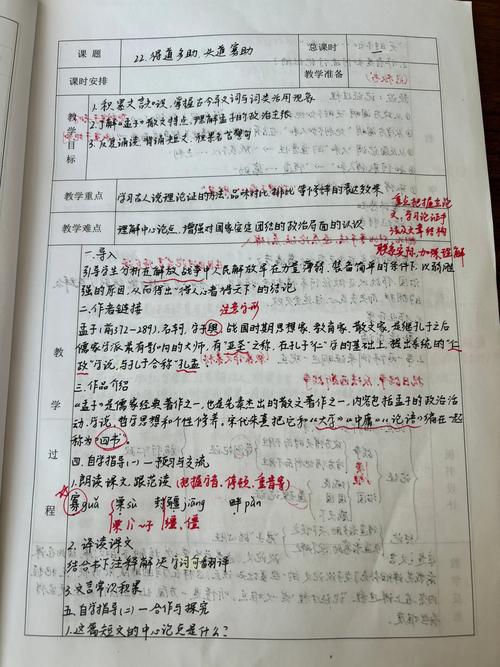 课题 22.得道多助,失道寡助 总课时
课时安排 教学准备
教学目标
1.积累文言知识,掌握古今异义词与词类活用现象
2.了解《孟子》散文特点,理解孟子的政治主张
3.反复诵读,背诵短文,积累名言警句
教学重点 学习古人说理论证的方法,品味对比、排比等修辞的表达效果
重点把握主论文,学习论证中
法及文章结构
教学难点 理解中心论点,增强对国家安定团结的政治局面的认识
联系实际,加深理解
教学过程
一.导入
引导学生分析在解放战争中人民解放军在力量薄弱、装备简单的条件下,以弱胜
强的原因,从而得出“得人心者得天下”的结论
二.作者链接 注意字形
孟子(前372-289),名轲,字子舆,战国时期思想家、教育家、散文家,是继孔子之后
儒家学派最有影响的大师,有“亚圣”之称.在孔子“仁”学的基础上,提出系统的“仁
政”学说,与孔子合称“孔孟”.
三.作品介绍
“孟子”是儒家经典著作之一,也是先秦杰出的散文著作之一,内容包括孟子的政治活
动、学说、哲学思想和个性修养。宋代朱熹把它和《大学》《中庸》《论语》编在一起
称为“四书”.
四.自学指导(一)——预习与交流
1.朗读课文,跟范读(把握字音、停顿、重音等)
寡guǎ 粟sù 封疆jiāng 畔pàn
栗l 缰、僵
2.译读课文
结合书下注释解决字词句翻译
3.文言常识积累
五.自学指导(二)——合作与探究
1.这篇短文的中心论点是什么?